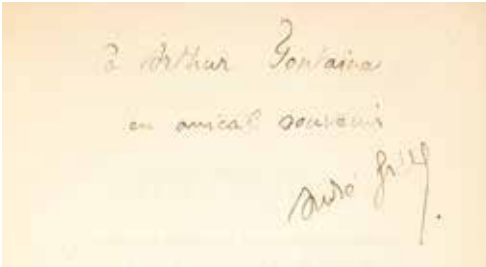 à Arthur Fontaine
en amical souvenir
André Gide.